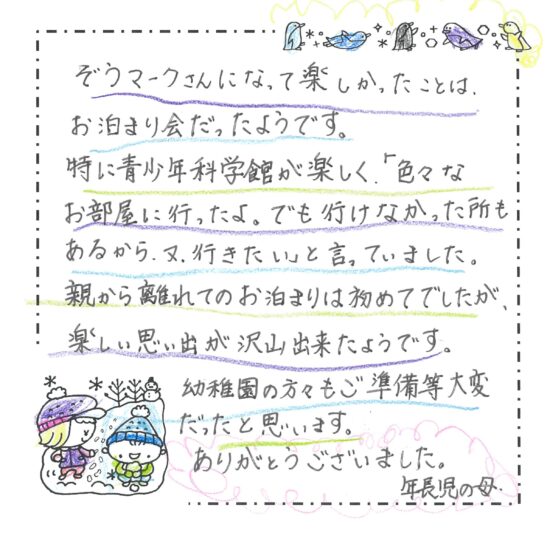 ぞうマークさんになって楽しかったことは、
お泊まり会だったようです。
特に青少年科学館が楽しく、「色々な
お部屋に行ったよ。でも行けなかった所も
あるから、又、行きたい」と言っていました。
親から離れてのお泊まりは初めてでしたが、
楽しい思い出が沢山出来たようです。
幼稚園の方々もご準備等大変
だったと思います。
ありがとうございました。
年長児の母